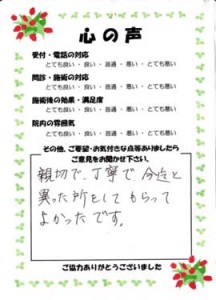 心の声
受付・電話の対応
とても良い ・ 良い ・ 普通 ・ 悪い ・ とても悪い
問診・施術の対応
とても良い ・ 良い ・ 普通 ・ 悪い ・ とても悪い
施術後の効果・満足度
とても良い ・ 良い ・ 普通 ・ 悪い ・ とても悪い
院内の雰囲気
とても良い ・ 良い ・ 普通 ・ 悪い ・ とても悪い
その他、ご要望・お気付きな点等ありましたら
ご意見をお聞かせ下さい。
親切で、丁寧で、今迄と
異った所をしてもらって
よかったです。
ご協力ありがとうございました